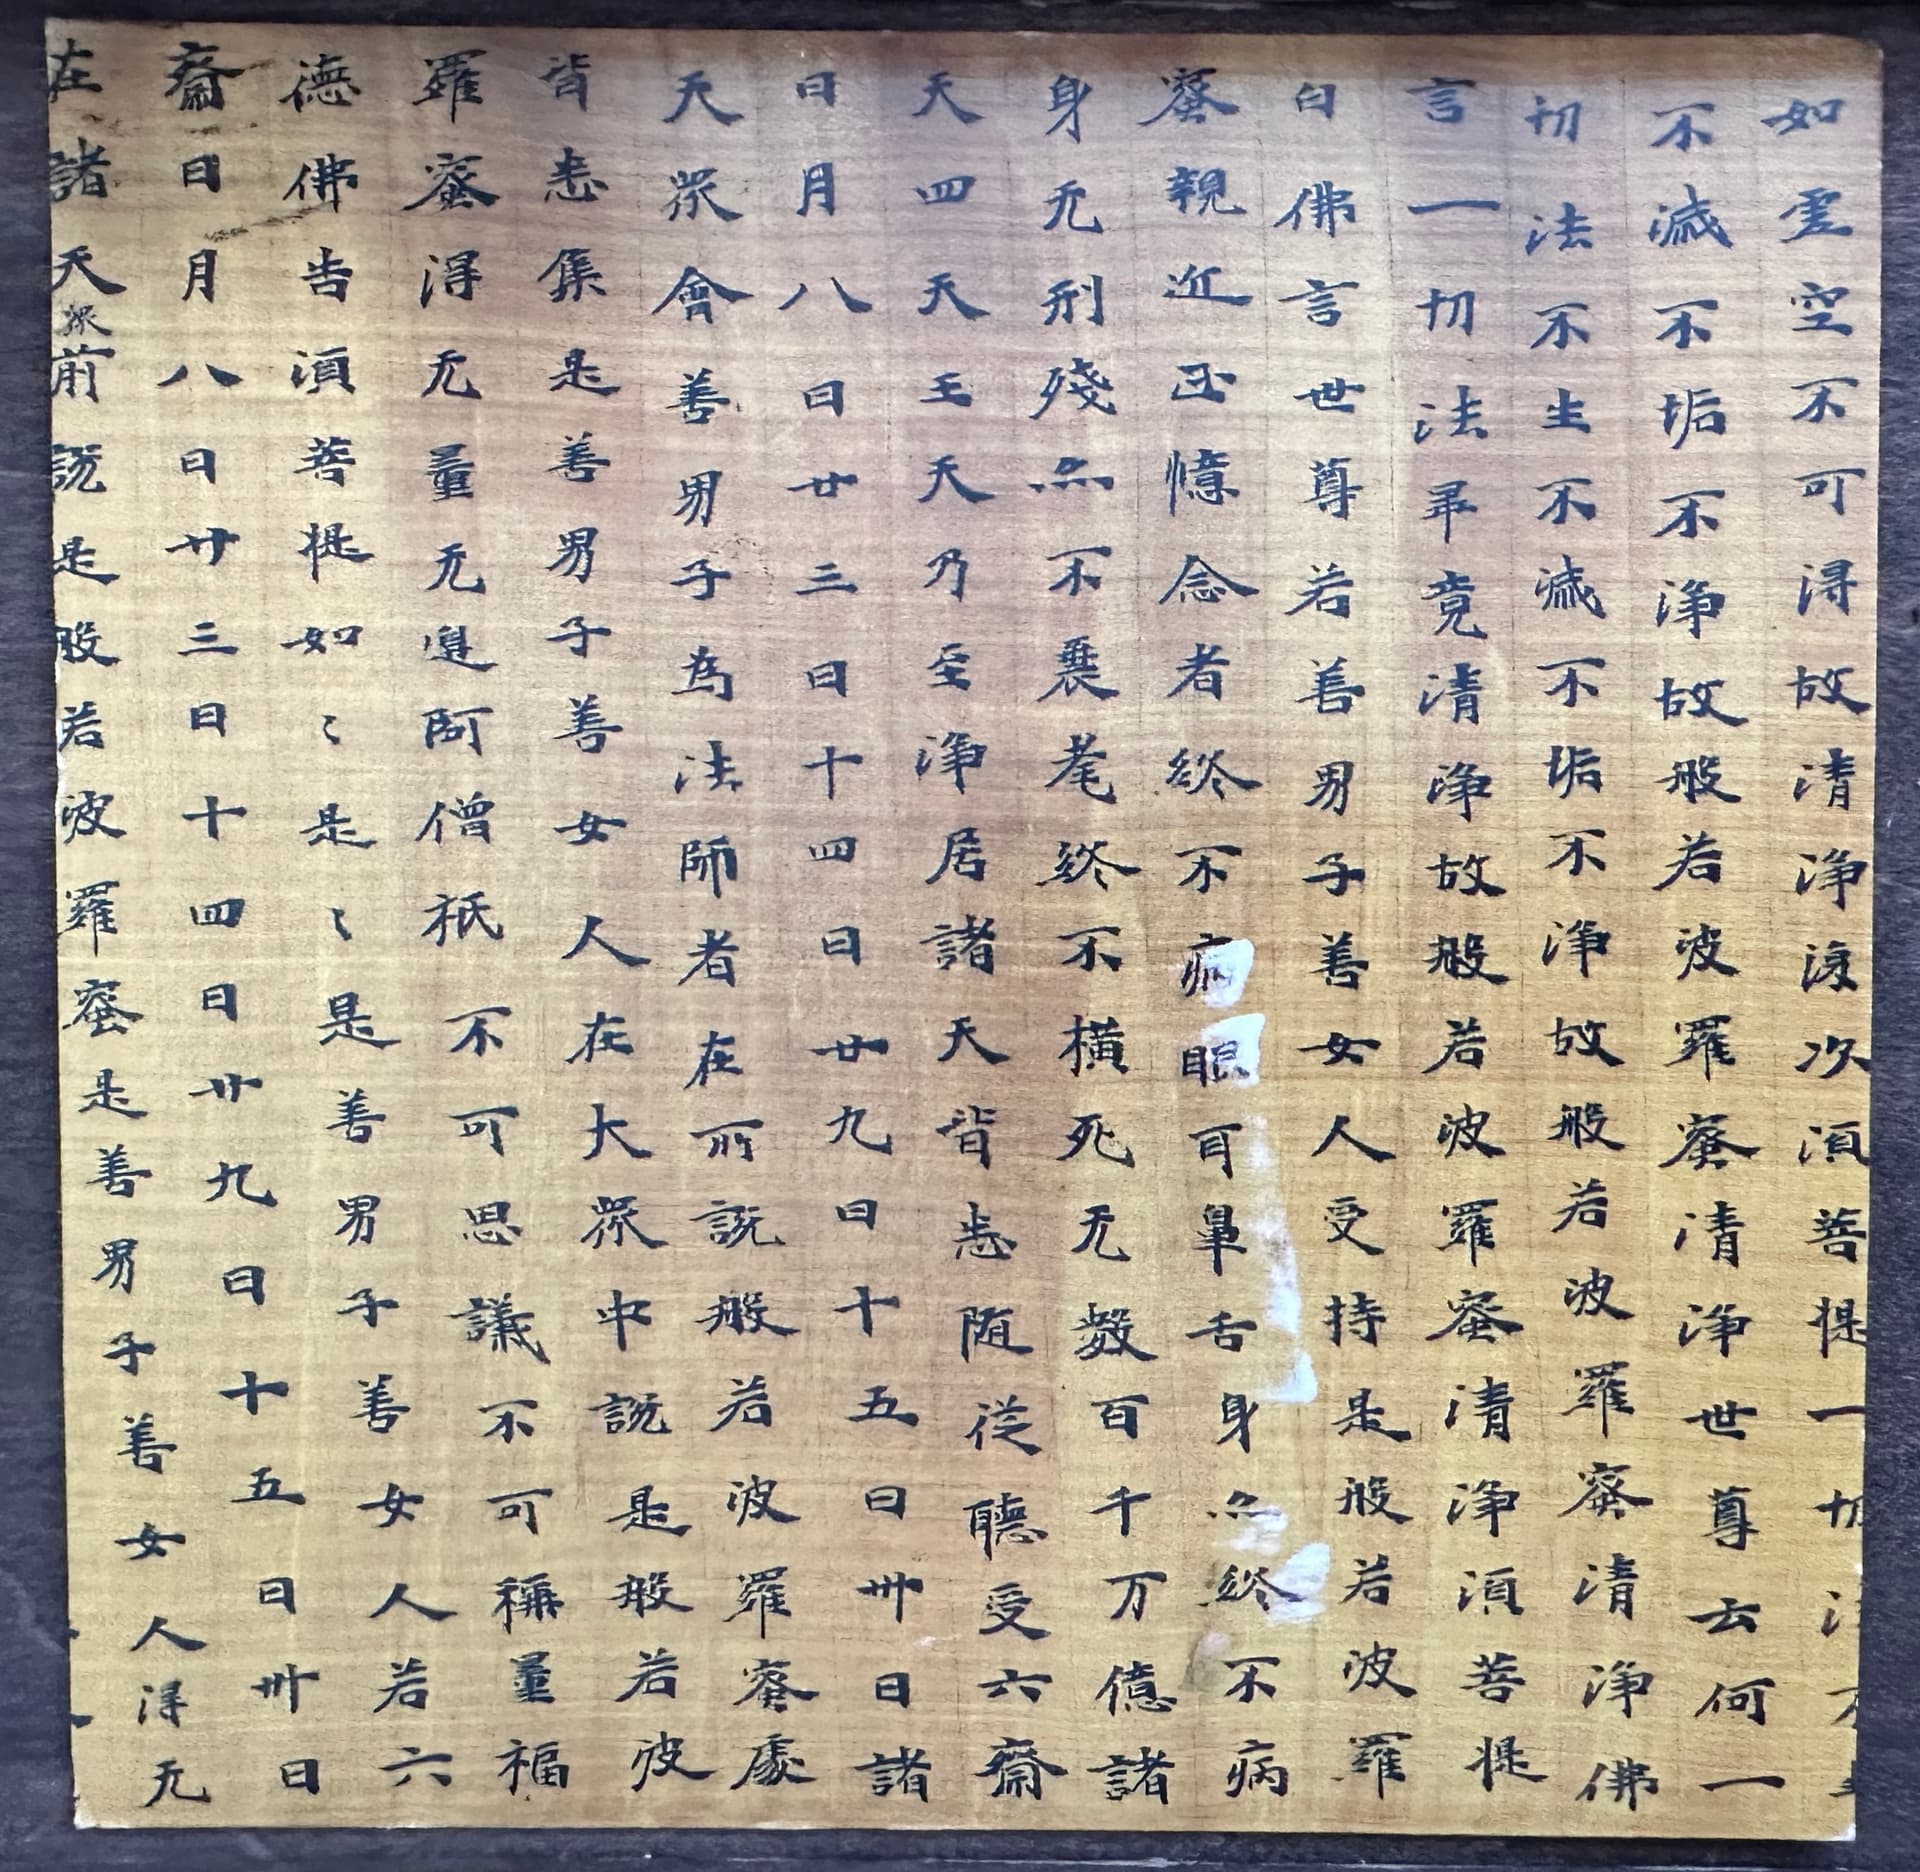 如虚空不可得故清浄復次湏菩提一切法不
不滅不垢不浄故般若波羅蜜清浄世尊云何一
切法不生不滅不垢不浄故般若波羅蜜清浄佛
言一切法畢竟清浄故般若波羅蜜清浄湏菩提
白佛言世尊若善男子善女人受持是般若波羅
蜜親近正憶念者終不病眼耳鼻舌身亦終不病
身无刑殘亦不襄耄終不橫死无數百千万億諸
天四天王天乃至浄居諸天皆悉随從聽受六齋
日月八日廿三日十四日廿九日十五日卅日諸
天衆會善男子為法師者在所說般若波羅蜜處
皆悉集是善男子善女人在大衆中說是般若波
羅蜜得无量无邊阿僧祇不可思議不可稱量福
德佛告湏菩提如〻是〻是善男子善女人若六
齋日月八日廿三日十四日廿九日十五日卅日
在諸天衆前說是般若波羅蜜是善男子善女人得无